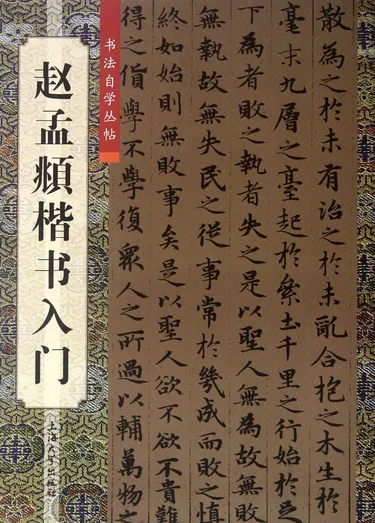 赵孟頫楷书入门
上海大学出版社
书法自学丛帖
散為之於未有治之於未亂合抱之木生於
毫末九層之臺起於絫土千里之行始於
下為者敗之執者失之是以聖人無為故
無執故無失民之從事常於幾成而敗之慎
終如始則無敗事矣是以聖人欲不欲不貴難
得之貨學不學復眾人之所過以輔萬物之